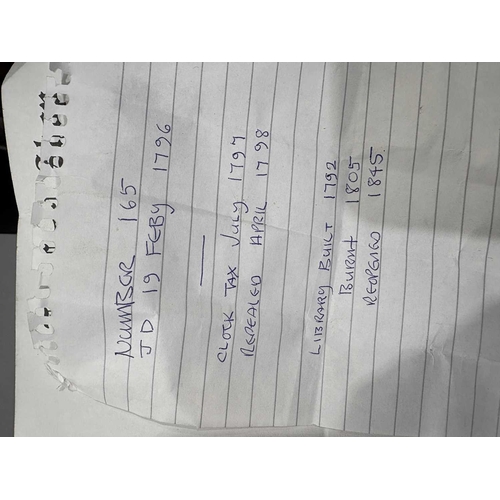 NUMBER 165
JD 19 FEBY 1796
CLOCK TAX JULY 1797
REPEALED APRIL 1798
LIBRARY BUILT 1792
BURNT 1805
REOPENED 1845